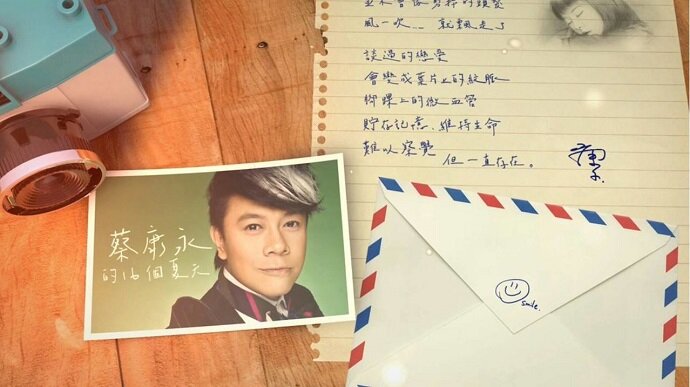 並不會像剪的頭髮
風一吹……就飄走了
談過的戀愛
會變成葉片上的紋脈
腳踝上的微血管
貯存記憶、維持生命
難以察覺 但一直存在。
蔡康永
的16個夏天
smile.